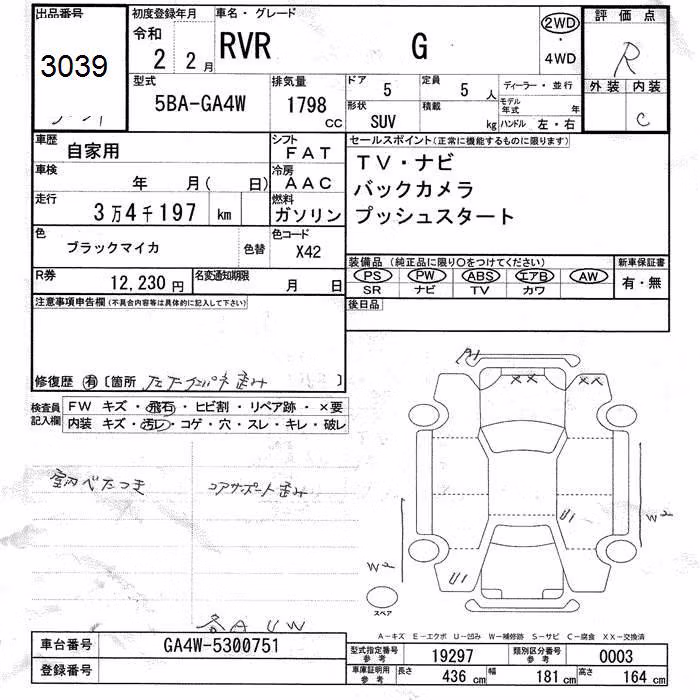 出品番号 初度登録年月 車名・グレード 評価点
3039 令和 2 2月 RVR G 2WD・4WD R
型式 排気量 ドア 5 定員 5人 ディーラー・並行 外装 内装
5BA-GA4W 1798 CC 形状 SUV 積載 kg モデル年式 年 ハンドル 左・右 C
車歴 自家用 シフト FAT セールスポイント(正常に機能するものに限ります)
車検 年 月( 日) 冷房 AAC TV・ナビ
走行 3万4千197 km 燃料 ガソリン バックカメラ
プッシュスタート
色 ブラックマイカ 色替 色コード X42
装備品 (純正品に限り○をつけてください) 新車保証書
R券 12,230円 名変通知期限 月 日 PS PW ABS エアB AW 有・無
SR ナビ TV カワ
注意事項申告欄(不具合内容等は具体的に記入して下さい) 後日品
修復歴 有 〔箇所 〕
検査員記入欄 FW キズ・飛石・ヒビ割・リペア跡・×要
内装 キズ・汚レ・コゲ・穴・スレ・キレ・破レ
XX XX
室内べたつき コアサポート歪み
U1 W2
W2 U1
スペア
各A U W
A-キズ E-エクボ U-凹み W-補修跡 S-サビ C-腐食 XX-交換済
車台番号 GA4W-5300751 型式指定番号 参考 19297 類別区分番号 参考 0003
登録番号 車庫証明用 参考 長さ 436 cm 幅 181 cm 高さ 164 cm